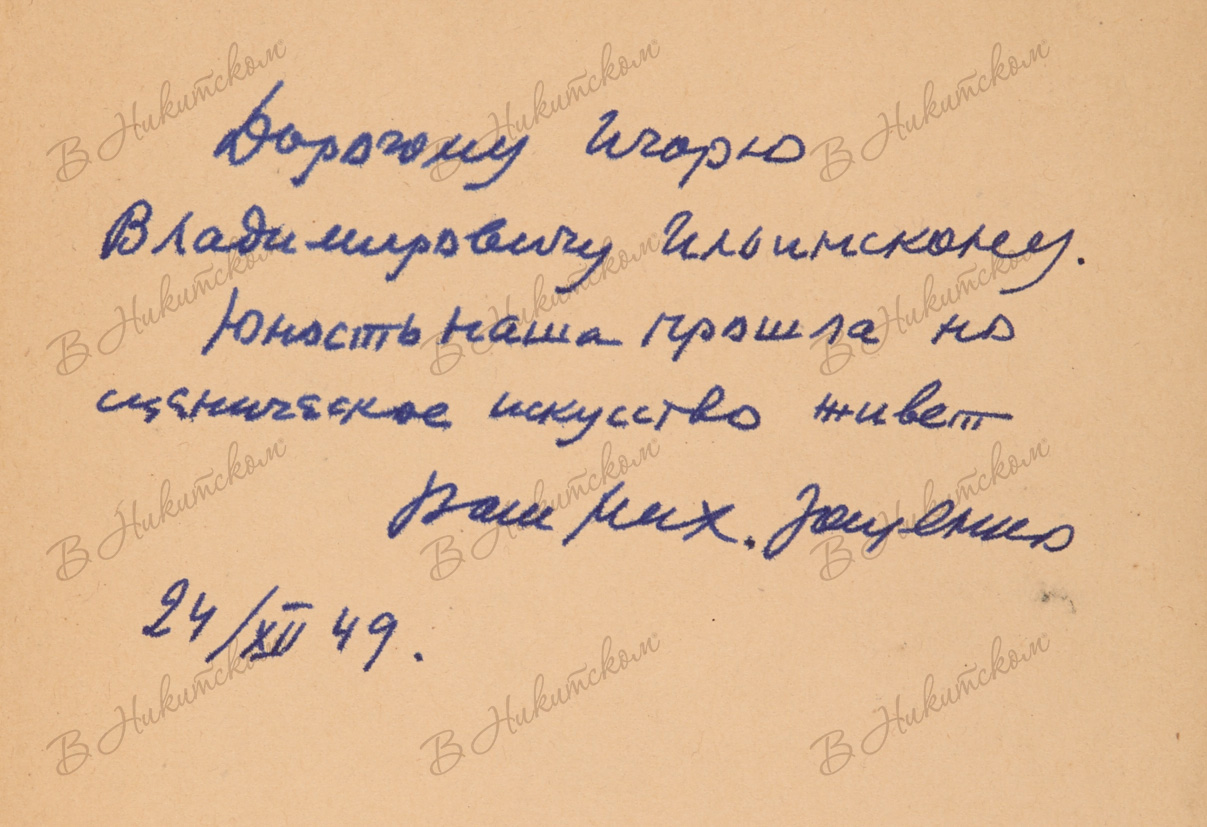 Дорогому Игорю
Владимировичу Ильинскому.
Юность наша прошла но
сценическое искусство живет
Ваш Мих. Зощенко
24/XII 49.
В Никитском
В Никитском
В Никитском
В Никитском
В Никитском
В Никитском
В Никитском
В Никитском
В Никитском
В Никитском
В Никитском
В Никитском